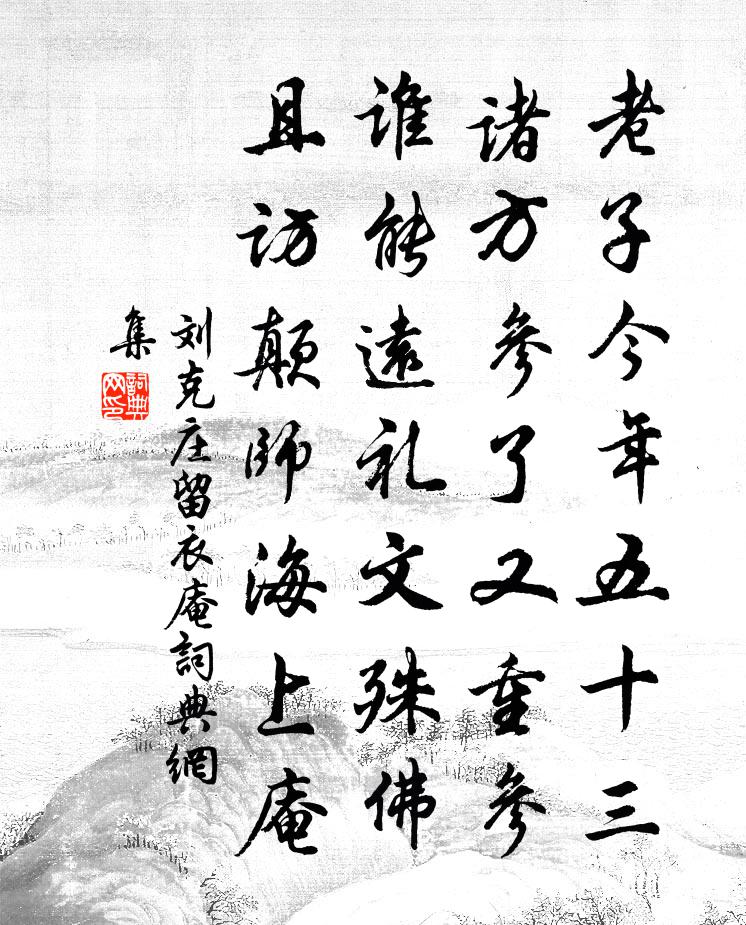 老子今年五十三
诸方参了又重参
谁能遠礼文殊佛
且访颠师海上庵
刘克庄留衣庵詞典網
集
詞典
网印